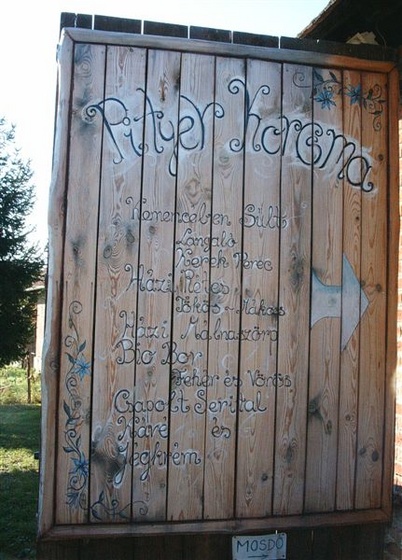 Pityer Korcsma
Kemencében Sült:
Langaló
Kerek Perec
Házi Rétes
Tökös - Mákos
Házi Málnaszörp
Bio Bor
Fehér és Vörös
Csapolt Serital
Kávé és
Jégkrém
MOSDÓ